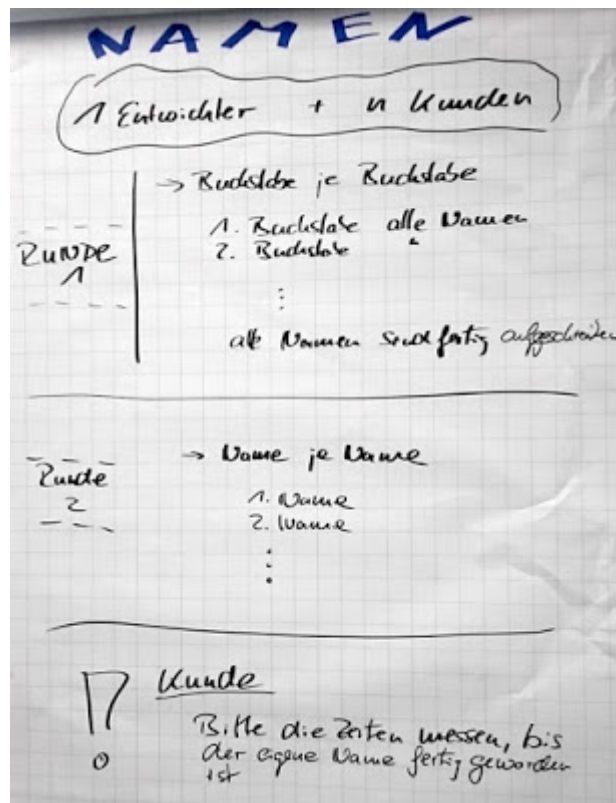 NAMEN
1 Entwickler + n Kunden
RUNDE
1
→ Buchstabe je Buchstabe
1. Buchstabe alle Namen
2. Buchstabe "
⋮
alle Namen sind fertig aufgeschrieben
Runde
2
→ Name je Name
1. Name
2. Name
⋮
! Kunde
Bitte die Zeiten messen, bis
der eigene Name fertig geworden
ist